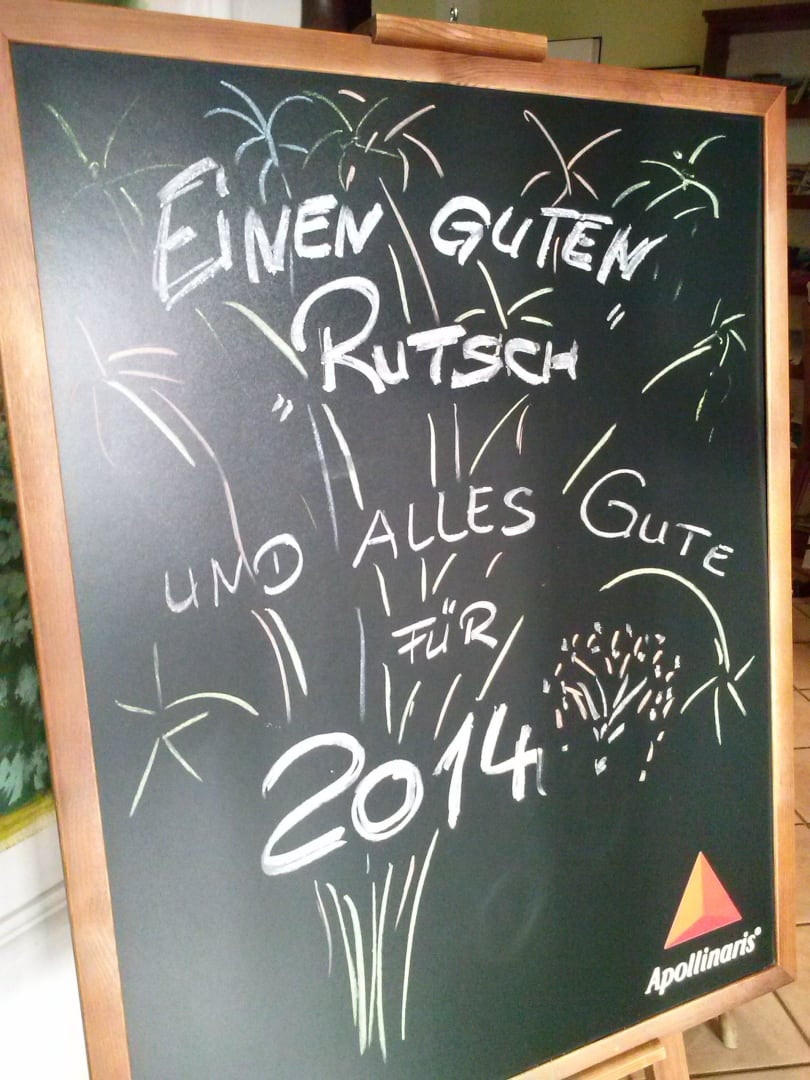 EINEN GUTEN
"RUTSCH"
UND ALLES GUTE
FÜR
2014
Apollinaris®